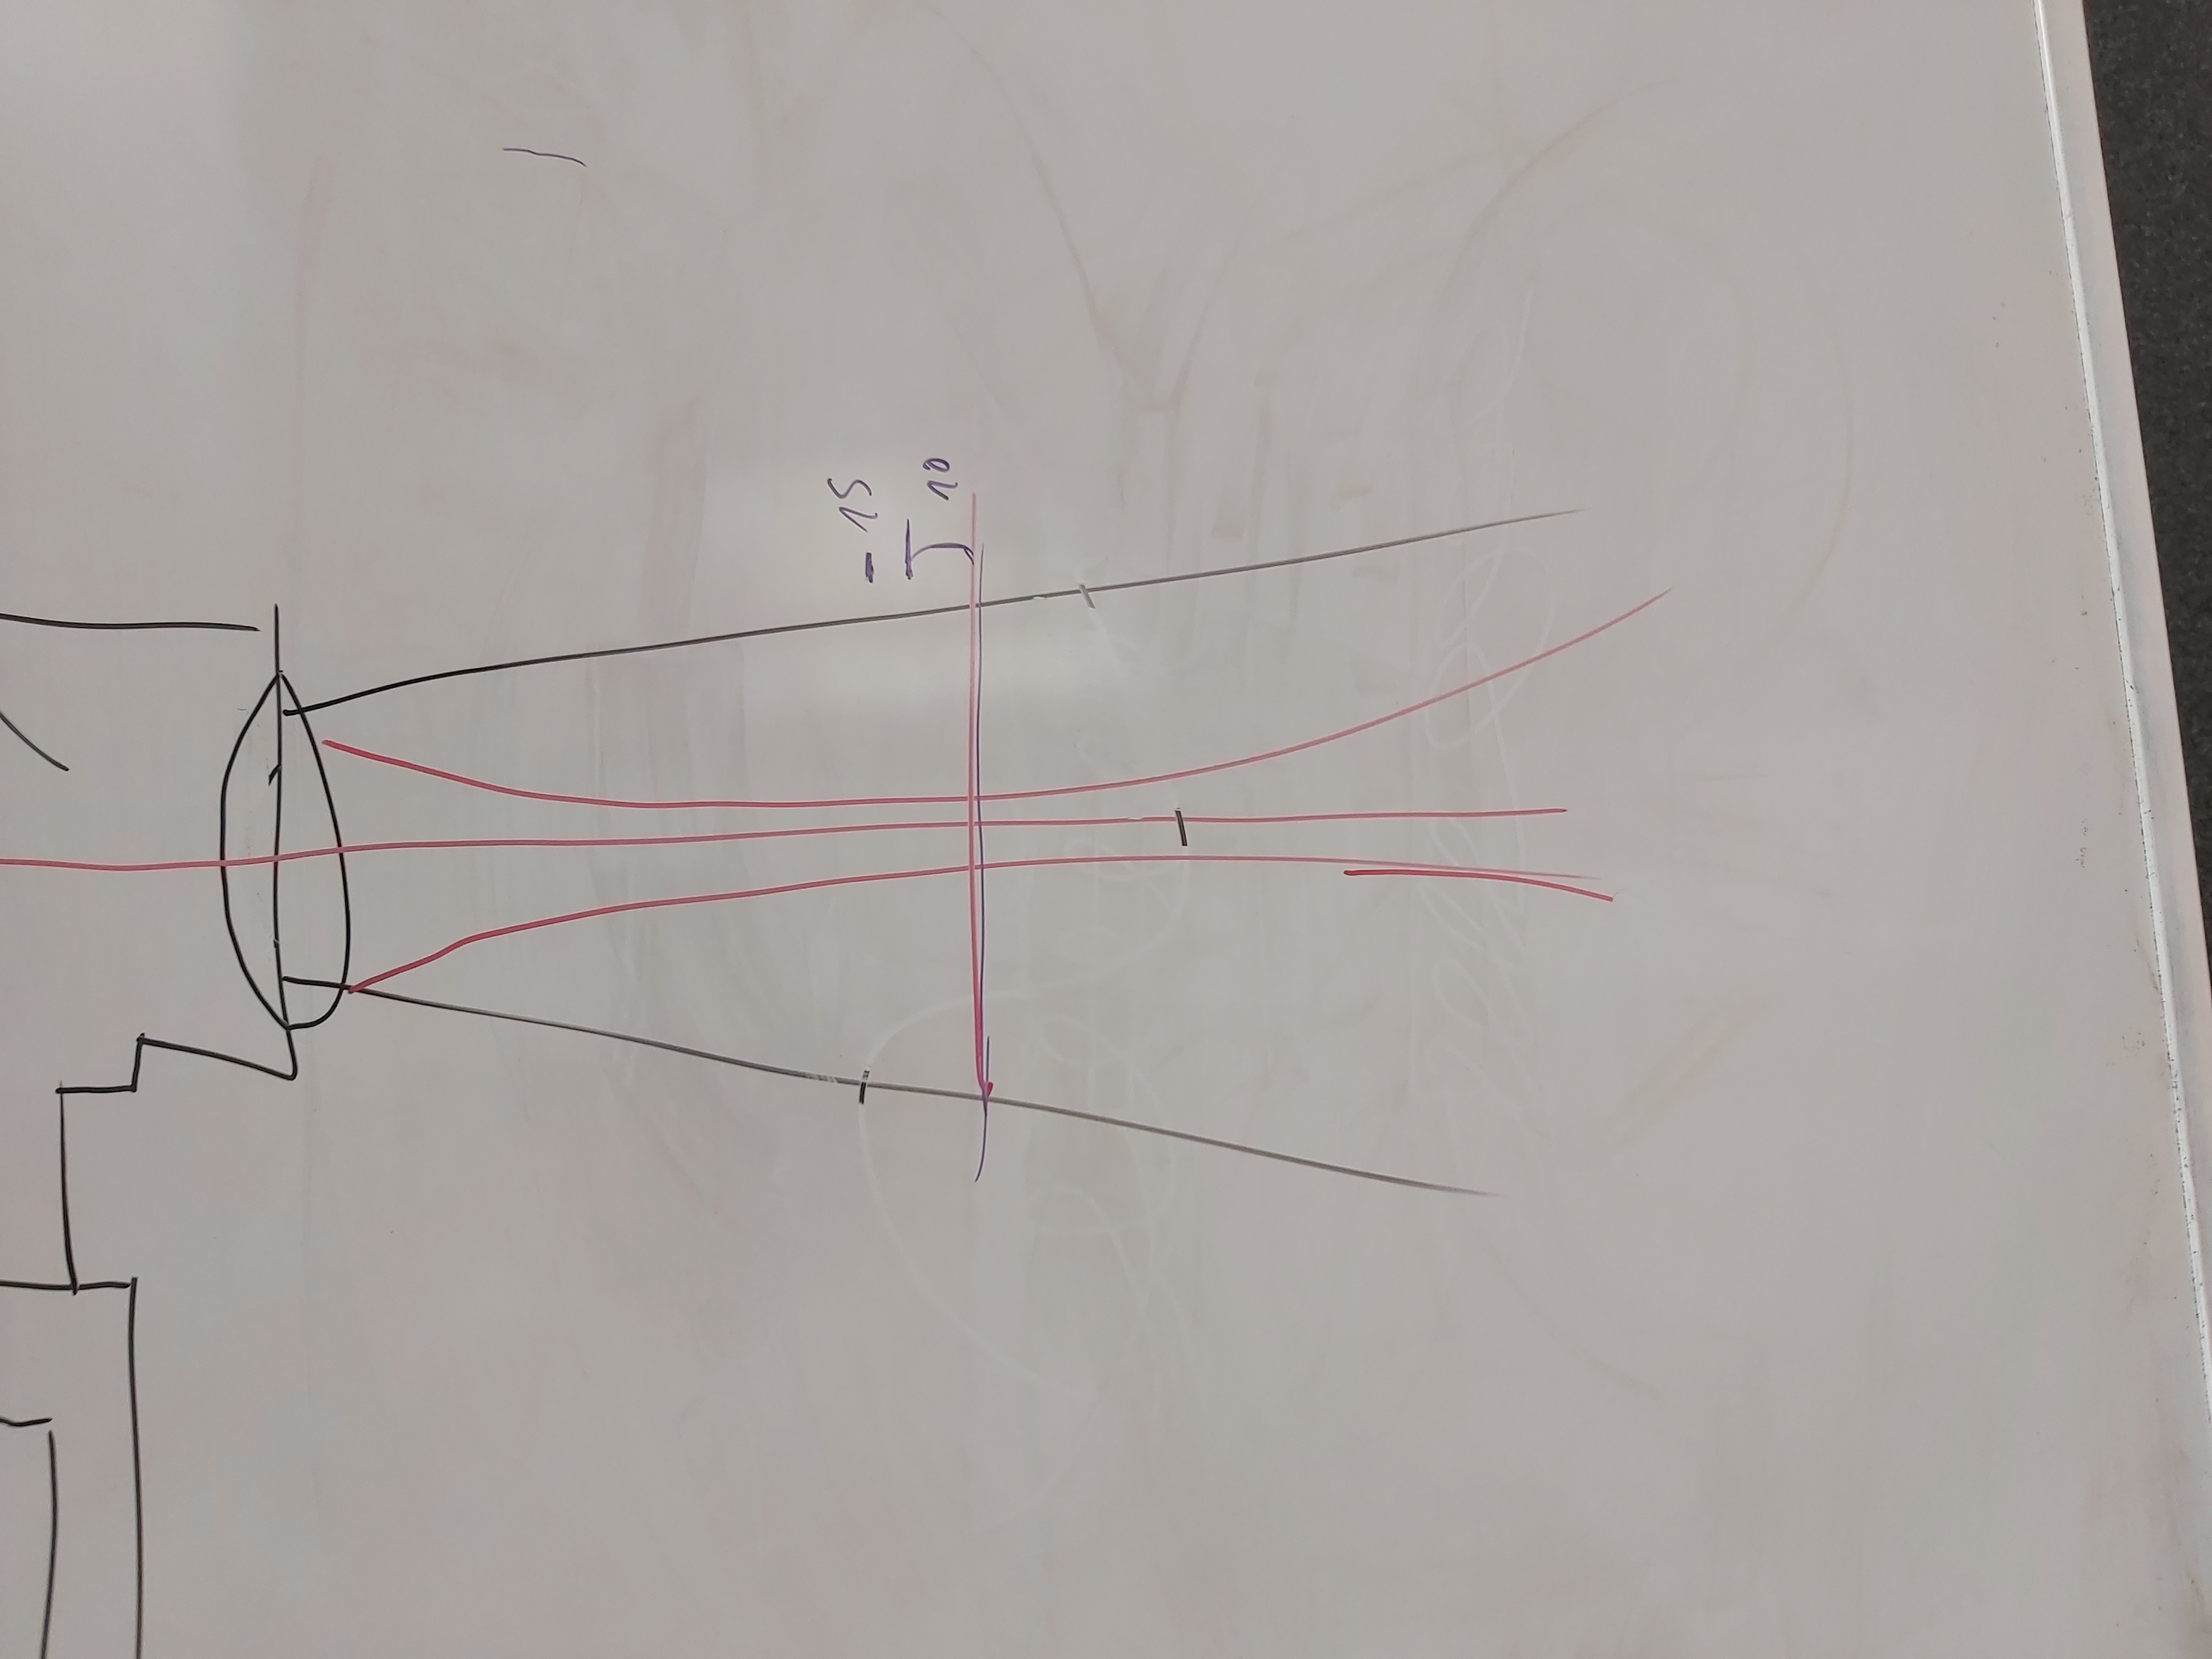 - 15
10